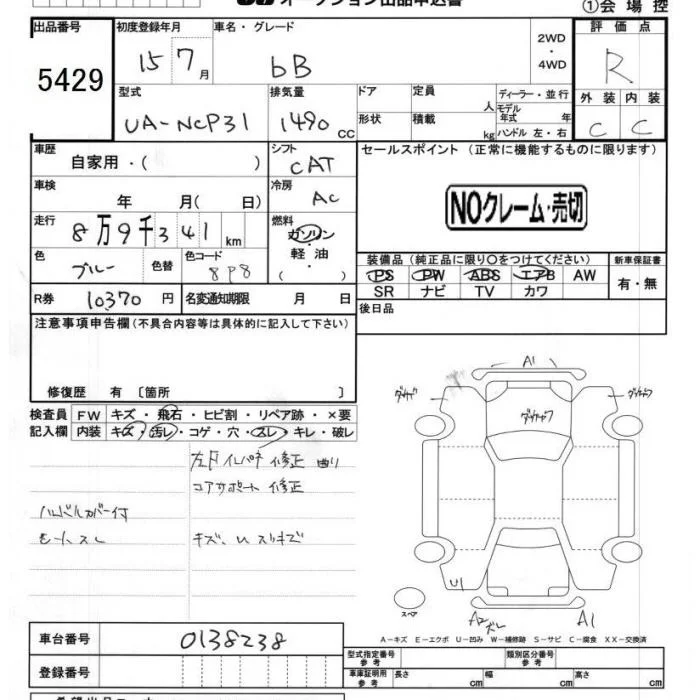 オークション出品申込書
①会場控
出品番号 初度登録年月 車名・グレード 評価点
5429 15 7月 bB 2WD・4WD R
型式 排気量 ドア 定員 人 ディーラー・並行 外装 内装
UA-NCP31 1490 cc 形状 積載 kg モデル年式 年 ハンドル 左・右 C C
車歴 自家用・( ) シフト CAT セールスポイント(正常に機能するものに限ります)
車検 年 月( 日) 冷房 AC
NOクレーム・売切
走行 8万9千341km 燃料 ガソリン・軽油・( )
色 ブルー 色替 色コード 8P8
装備品(純正品に限り○をつけてください) 新車保証書
PS PW ABS エアB AW 有・無
SR ナビ TV カワ
R券 10370円 名変通知期限 月 日 後日品
注意事項申告欄(不具合内容等は具体的に記入して下さい)
修復歴 有〔箇所 〕
検査員 FW キズ・飛石・ヒビ割・リペア跡・×要
記入欄 内装 キズ・汚レ・コゲ・穴・スレ・キレ・破レ
左F インパネ修正 曲り
コアサポート修正
ハンドルカバー付
キズ、U スリキズ
A1
U1
A2 ズレ
A1
スペア
A-キズ E-エクボ U-凹み W-補修跡 S-サビ C-腐食 XX-交換済
車台番号 0138238 型式指定番号 参考 類別区分番号 参考
登録番号 車庫証明用 参考 長さ cm 幅 cm 高さ cm